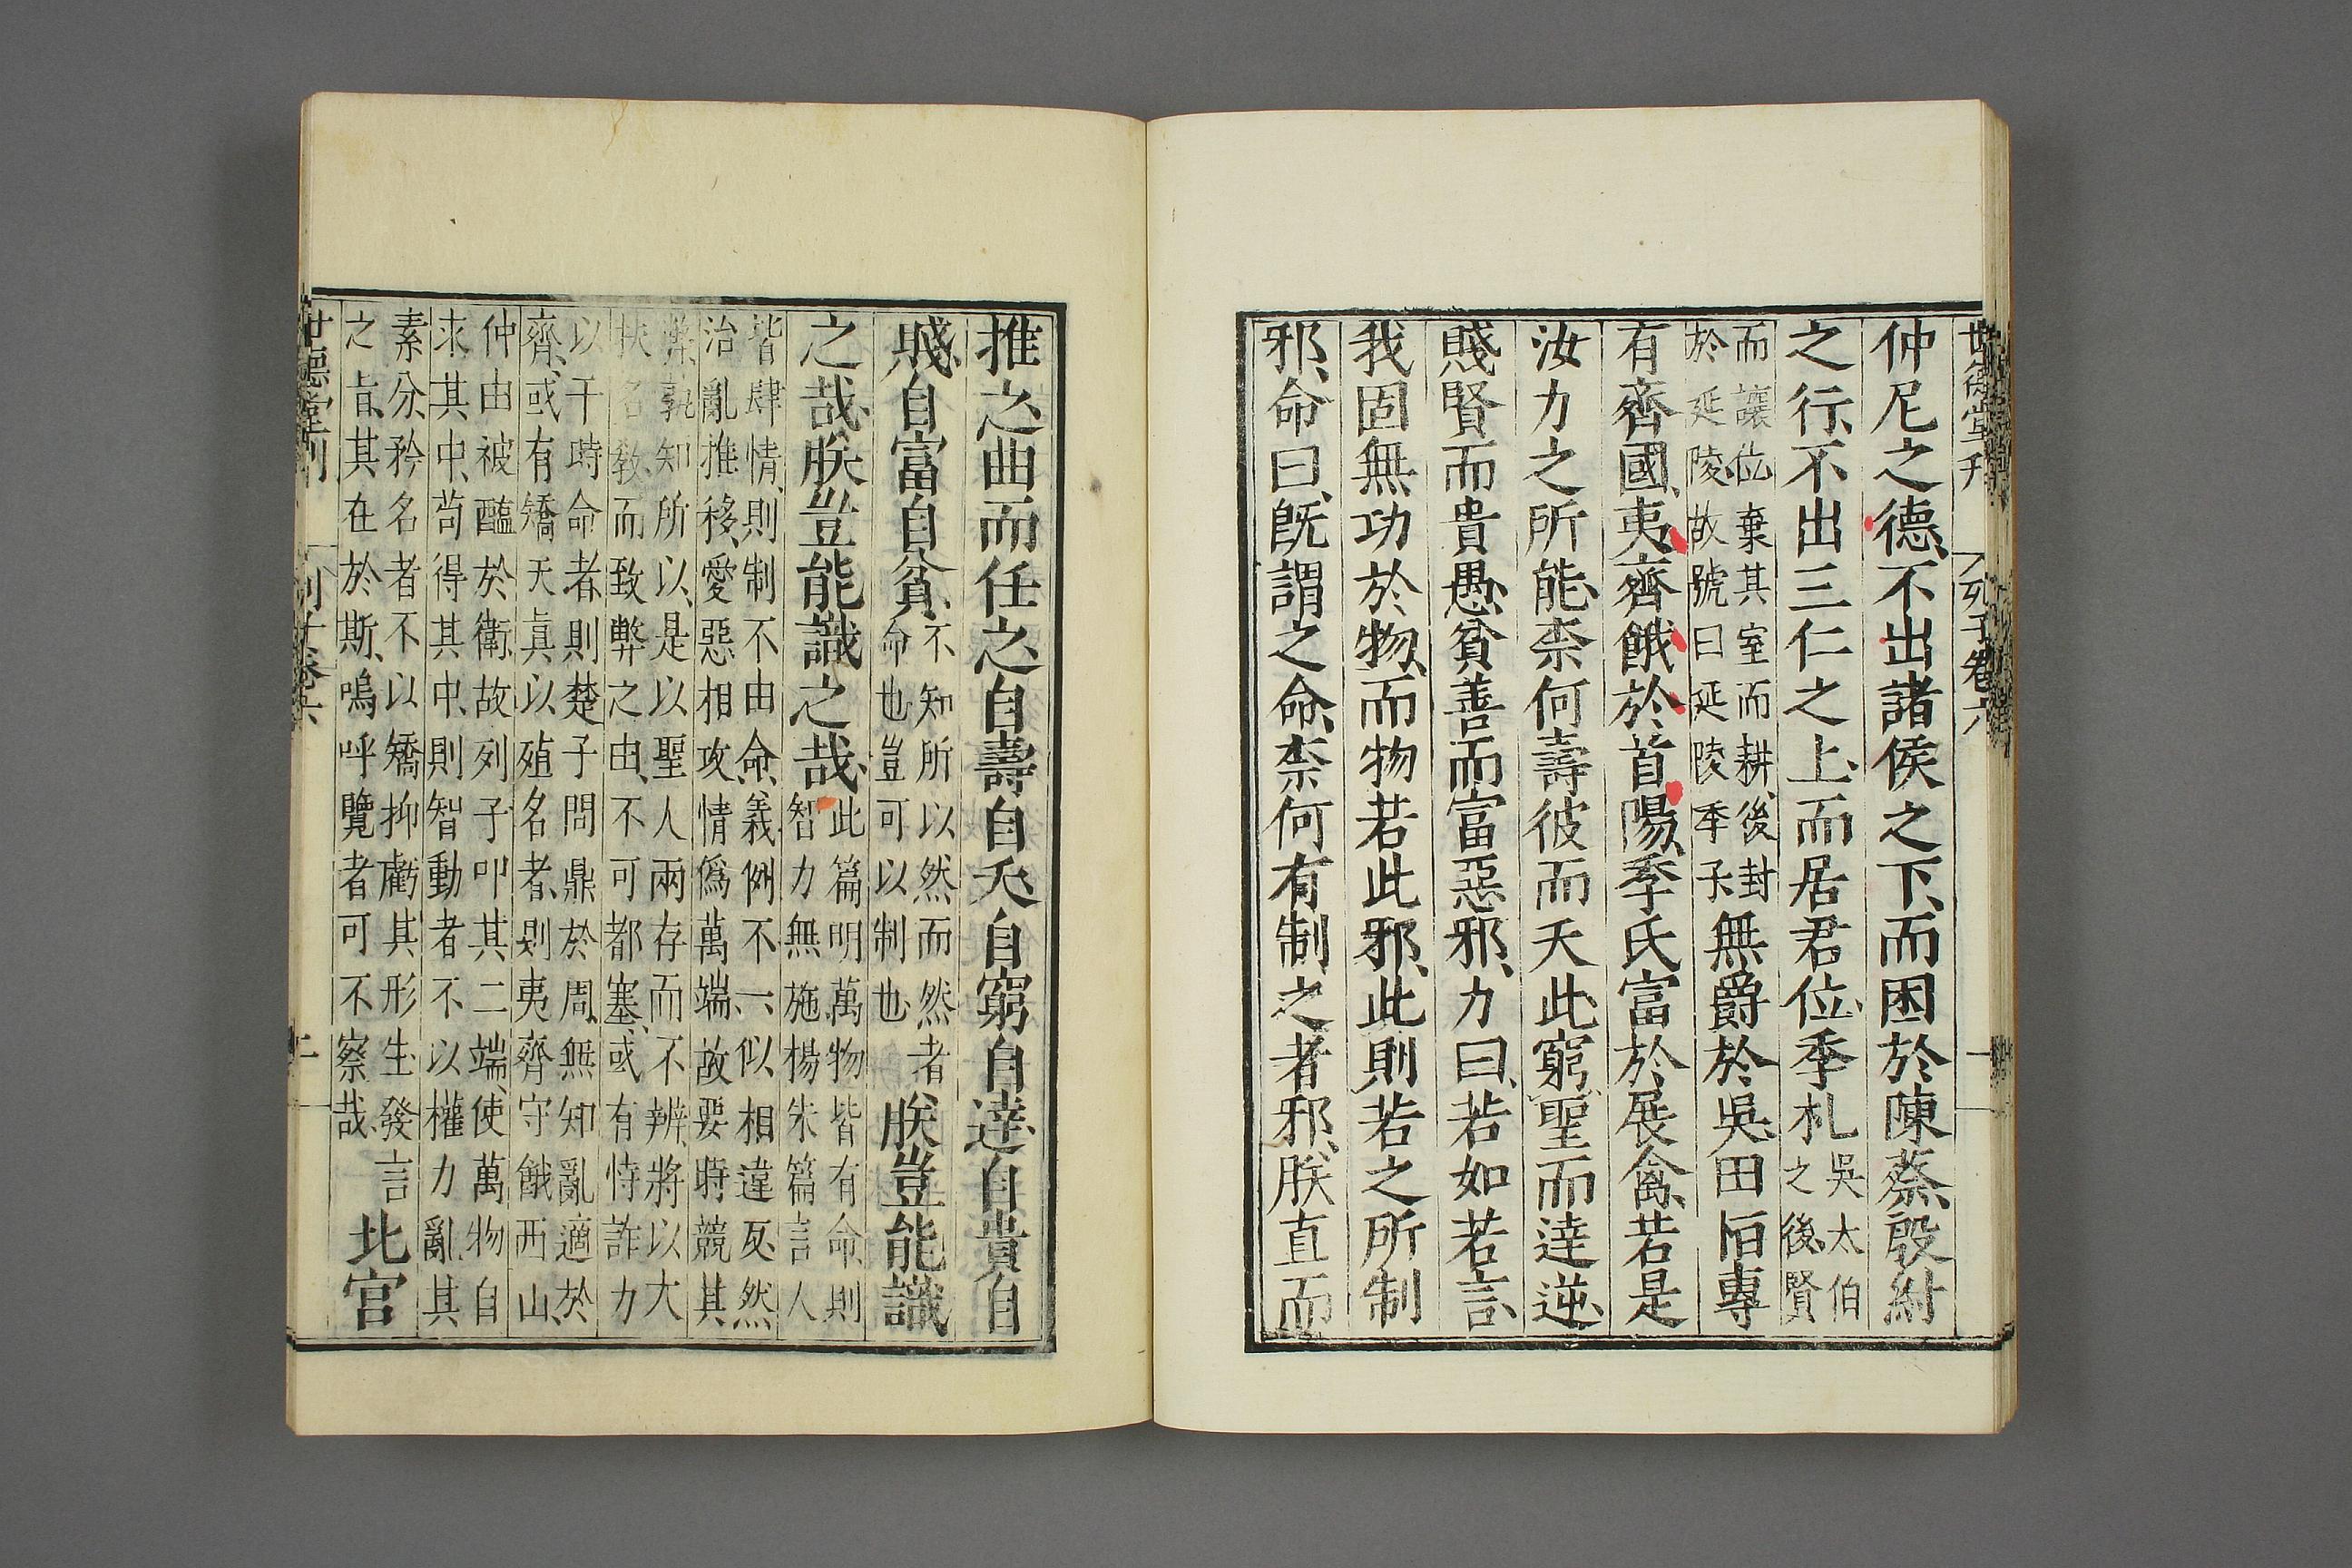 世德堂刊 列子卷六 一
仲尼之德不出諸侯之下而困於陳蔡殷紂
之行不出三仁之上而居君位季札吳太伯之後賢
而讓位棄其室而耕後封於延陵故號曰延陵季子無爵於吳田恒專
有齊國夷齊餓於首陽季氏富於展禽若是
汝力之所能柰何壽彼而夭此窮聖而達逆
賤賢而貴愚貧善而富惡邪力曰若如若言
我固無功於物而物若此邪此則若之所制
邪命曰既謂之命柰何有制之者邪朕直而
推之曲而任之自壽自夭自窮自達自貴自
賤自富自貧不知所以然而然者命也豈可以制也朕豈能識
之哉朕豈能識之哉此篇明萬物皆有命則智力無施楊朱篇言人
皆肆情則制不由命義例不一似相違反然
治亂推移愛惡相攻情僞萬端故要時競其
弊孰知所以是以聖人兩存而不辨將以大
扶名教而致弊之由不可都塞或有恃詐力
以干時命者則楚子問鼎於周無知亂適於
齊或有矯天真以殉名者則夷齊守餓西山
仲由被醢於衛故列子叩其二端使萬物自
求其中苟得其中則智動者不以權力亂其
素分矜名者不以矯抑虧其形生發言
之旨其在於斯嗚呼覽者可不察哉北宮
世德堂刊 列子卷六 二